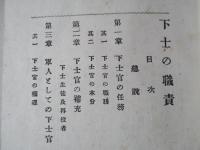 下士の職責
目次
總説
第一章 下士官の任務
其一 下士官の職務
其二 下士官の本分
第二章 下士官の補充
下士生徒及再役者
第三章 軍人としての下士官
其一 下士官の